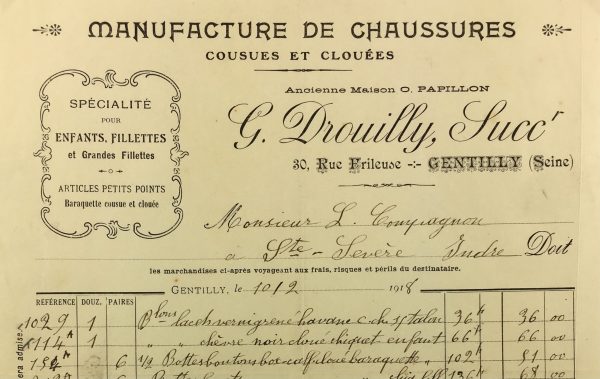 MANUFACTURE DE CHAUSSURES
COUSUES ET CLOUÉES
Ancienne Maison O. PAPILLON
G. Drouilly, Succr
30, Rue Frileuse -:- GENTILLY (Seine)
SPÉCIALITÉ
POUR
ENFANTS, FILLETTES
et Grandes Fillettes
ARTICLES PETITS POINTS
Baraquette cousue et clouée
Monsieur L. Compagnon
à Ste-Sevère Indre Doit
les marchandises ci-après voyageant aux frais, risques et périls du destinataire.
GENTILLY, le 10/2 1918
RÉFÉRENCE DOUZ. PAIRES
1029 1 vernigrené havane talon 36 36 00
114 1 " chèvre noir cloué chiquet enfant 66 66 00
154 6 1/2 Bottes boutons box-calf cloué baraquette 102 51 00
6 136 68 00
era admise